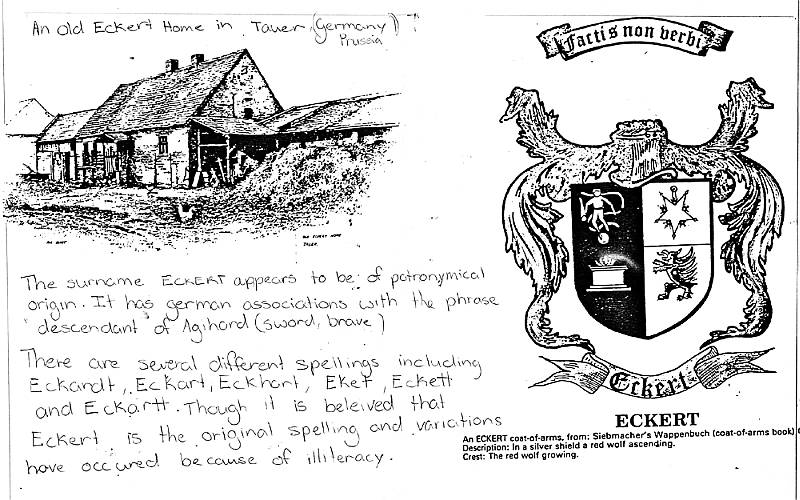 An Old Eckert Home in Tauer (Germany)
Prussia
OLD ECKERT HOME
TAUER
The surname ECKERT appears to be of patronymical
origin. It has german associations with the phrase
"descendant" of Agihard (sword, brave)
There are several different spellings including
Eckardt, Eckart, Eckhart, Eket, Eckett
and Eckartt. Though it is beleived that
Eckert is the original spelling and variations
have occured because of illiteracy.
Factis non verbis
Eckert
ECKERT
An ECKERT coat-of-arms, from: Siebmacher's Wappenbuch (coat-of-arms book)
Description: In a silver shield a red wolf ascending.
Crest: The red wolf growing.